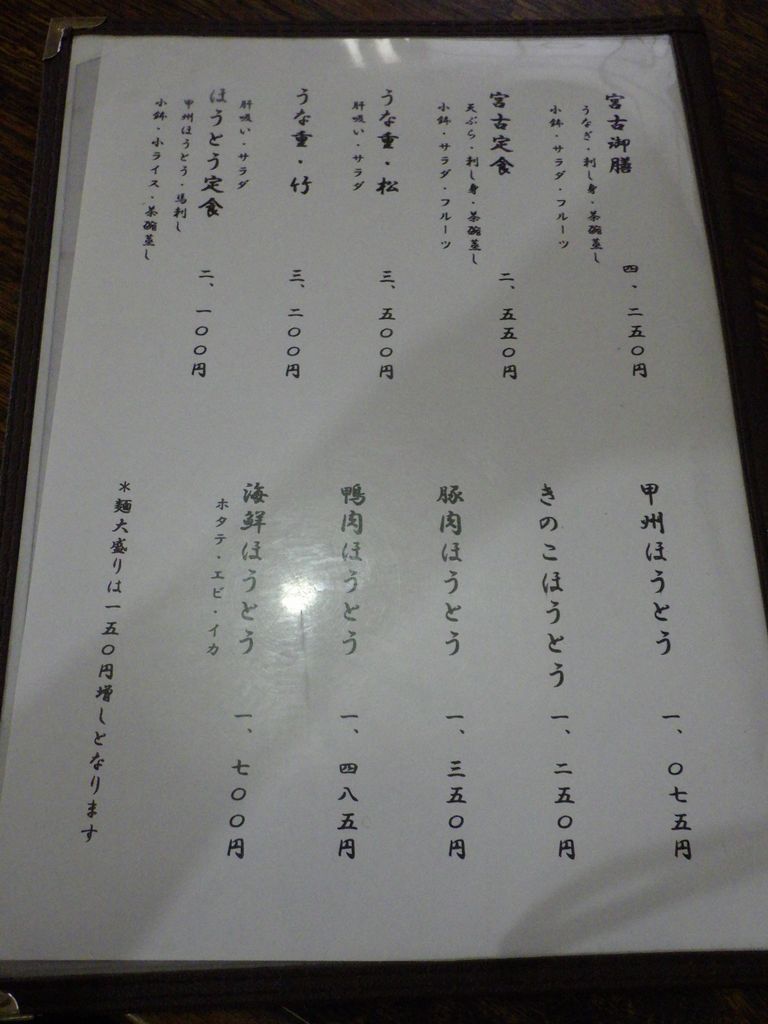 宮古御膳
うなぎ・刺し身・茶碗蒸し
小鉢・サラダ・フルーツ
四、二五〇円
宮古定食
天ぷら・刺し身・茶碗蒸し
小鉢・サラダ・フルーツ
二、五五〇円
うな重・松
肝吸い・サラダ
三、五〇〇円
うな重・竹
肝吸い・サラダ
三、二〇〇円
ほうとう定食
甲州ほうとう・馬刺し
小鉢・小ライス・茶碗蒸し
二、一〇〇円
甲州ほうとう
一、〇七五円
きのこほうとう
一、二五〇円
豚肉ほうとう
一、三五〇円
鴨肉ほうとう
一、四八五円
海鮮ほうとう
ホタテ・エビ・イカ
一、七〇〇円
＊麺大盛りは一五〇円増しとなります